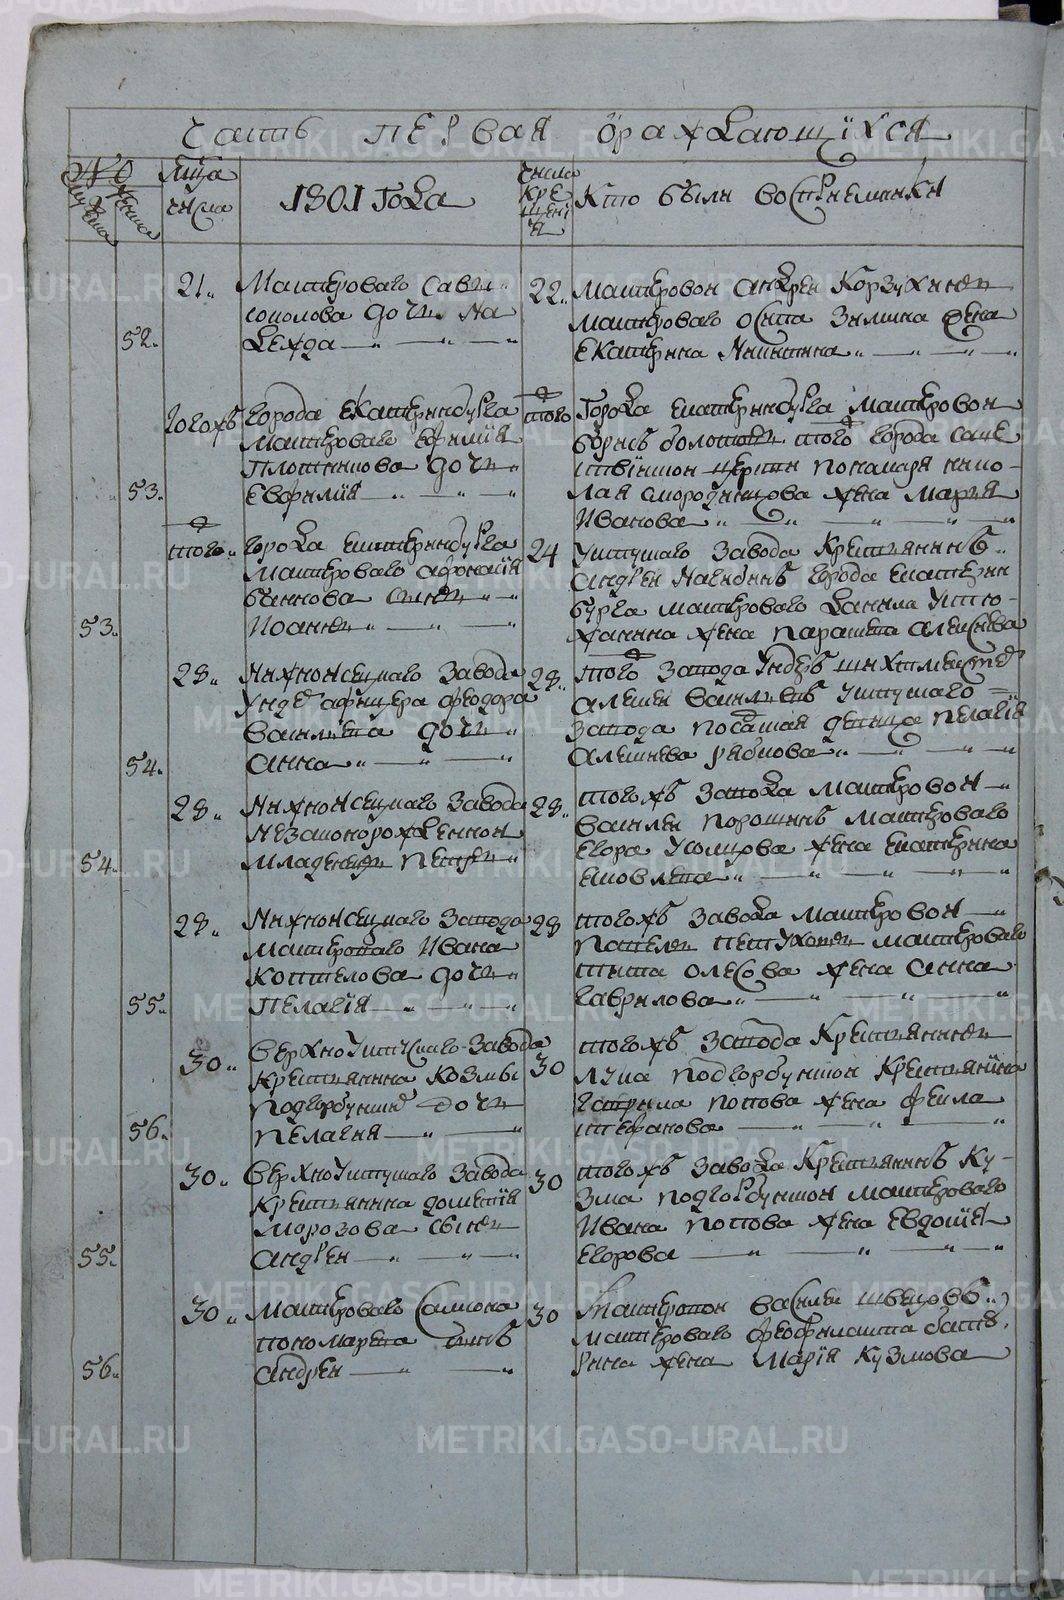 часть первая ѡ раждающихся
№
мужеска
женска
числа
1801 года
числа крещенїя
кто были восприемники
21
52
Мастероваго Савы
соколова дочь На
дежда
22
Мастеровои андреи Корзухинъ
мастероваго осипа Зимина жена
екатерина Никитина
тогожъ
53
города екатеринбурга
Мастероваго ефимїя
Плотникова дочь
Евфимїя
того
города екатеринбурга мастеровои
борисъ болотовъ того города
церкви пономаря нико-
лая смородинцова жена марья
Иванова
того
53
города екатеринбурга
мастероваго афонасїя
баннова сынъ
Иоаннъ
24
Уктускаго завода крестьянинъ
андреи города екатерин
бурга мастероваго данила Устю-
жанина жена парасковья алексеева
28
54
Нижноисецкаго Завода
Ундер афицера феодора
василева дочь
анна
28
того завода Ундеръ шихтмеистеръ
алексеи василевъ Уктускаго
завода девица пелагїя
алексеева рябкова
28
54
Нижноисецкаго Завода
незаконорожденнои
младенецъ петръ
28
тогожъ завода мастеровои
василеи порошинъ мастероваго
егора усолцова жена екатерина
яковлева
28
55
Нижноисецкаго Завода
мастероваго Ивана
Котелова дочь
Пелагїя
28
тогожъ завода мастеровои
павелъ петуховъ мастероваго
тита олесова жена анна
гаврилова
30
56
верхноуктускаго завода
крестьянина козмы
подгорбунших дочь
Пелагия
30
тогожъ завода крестьянинъ
лука подгорбуншои крестьянина
гаврила попова жена фекла
степанова
30
55
верхноуктускаго завода
Крестьянина дометїя
Морозова сынъ
андреи
30
тогожъ завода крестьянинъ Ку-
зма подгорбуншои мастероваго
Ивана попова жена Евдокия
Егорова
30
56
мастероваго Самсона
пономарева сынъ
андреи
30
мастеровои василеи швецовъ
мастероваго феофилакта батю
рина жена Марїя кузмова
METRIKI.GASO-URAL.RU